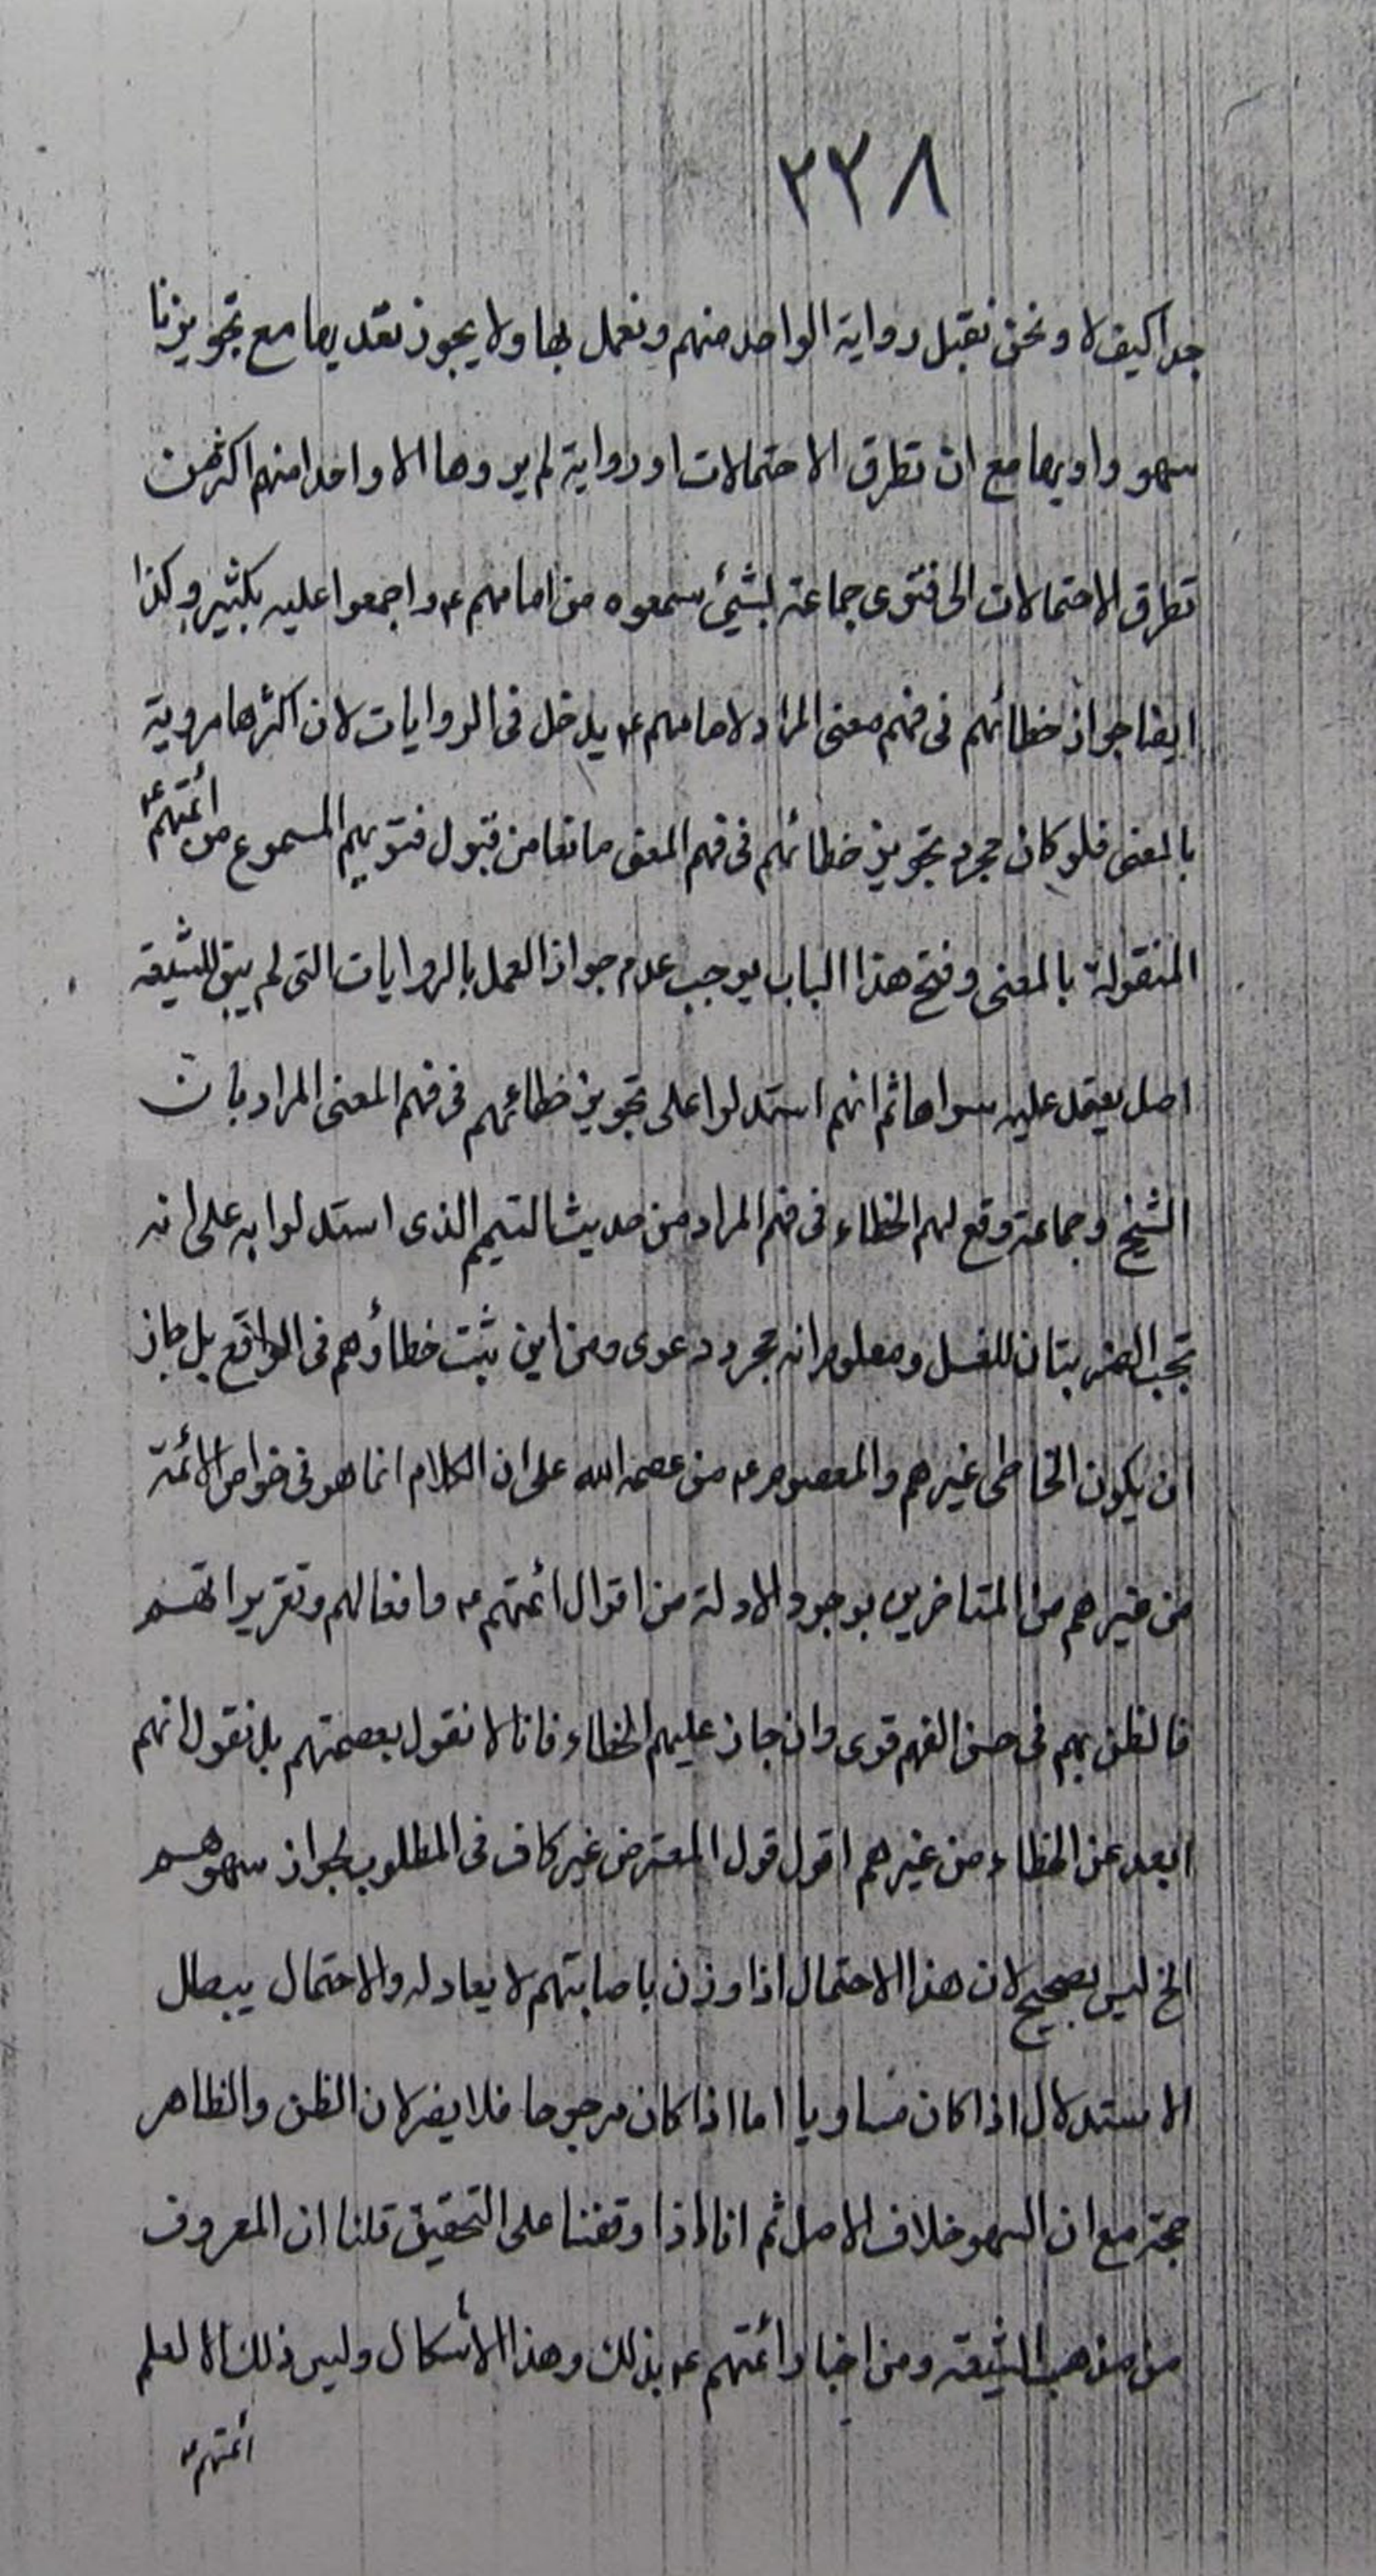 ٢٣٨
جدا كيف لا ونحن نقبل رواية الواحد منهم ونعمل بها ولا يجوز نقد يها مع تجويزنا
سهو راويها مع ان تطرق الاحتمالات او رواية لم يروها الا واحدا منهم اكثر من
تطرق الاحتمالات الى فتوى جماعة بشيئ سمعوه من امامهم ع واجمعوا عليه بكثير وكذا
ايضا جواز خطائهم فى فهم معنى المراد لامامهم ع يدخل فى الروايات لان اكثرها مروية
بالمعنى فلو كان مجرد تجويز خطائهم فى فهم المعنى مانعا من قبول فتويهم المسموع من أئمتهم ع
المنقولة بالمعنى وفتح هذا الباب يوجب عدم جواز العمل بالروايات التى لم يبق للشيعة
اصل يعتمد عليه سواها ثم انهم استدلوا على تجويز خطائهم فى فهم المعنى المراد بان
الشيخ وجماعة وقع لهم الخطاء فى فهم المراد من حديث التيمم الذى استدلوا به على انه
تجب الضربتان للغسل ومعلوم انه مجرد دعوى ومن اين يثبت خطاؤهم فى الواقع بل جاز
ان يكون الخاطى غيرهم والمعصوم ع من عصمه الله على ان الكلام انما هو فى خواص الائمة
من غيرهم من المتاخرين بوجود الادلة من اقوال ائمتهم ع وافعالهم وتقريراتهم
فالظن بهم فى حسن الفهم قوى وان جاز عليهم الخطاء فانا لا نقول بعصمتهم بل نقول انهم
ابعد عن الخطاء من غيرهم اقول قول المعترض غير كاف فى المطلوب لجواز سهوهم
الخ ليس بصحيح لان هذا الاحتمال اذا وزن باصابتهم لا يعادله والاحتمال يبطل
الاستدلال اذا كان مساويا اما اذا كان مرجوحا فلا يضر لان الظن والظاهر
حجة مع ان السهو خلاف الاصل ثم انا اذا وقفنا على التحقيق قلنا ان المعروف
من مذهب الشيعة ومن اخبار ائمتهم ع بذلك وهذا الأشكال وليس ذلك الا لعلم
أئمتهم ع